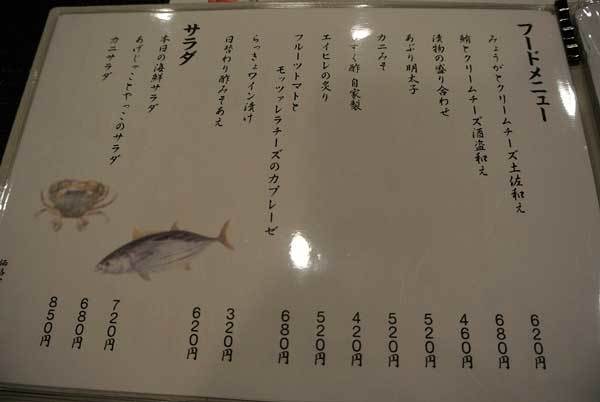 フードメニュー
みょうがとクリームチーズ土佐和え 620円
鮪とクリームチーズ酒盗和え 680円
漬物の盛り合わせ 460円
あぶり明太子 520円
カニみそ 520円
ずく酢 自家製 420円
エイヒレの炙り 520円
フルーツトマトと
モッツァレラチーズのカプレーゼ 680円
らっきょワイン漬け 320円
日替わり酢みそあえ 620円
サラダ
本日の海鮮サラダ 720円
あげじゃことやっこのサラダ 680円
カニサラダ 850円